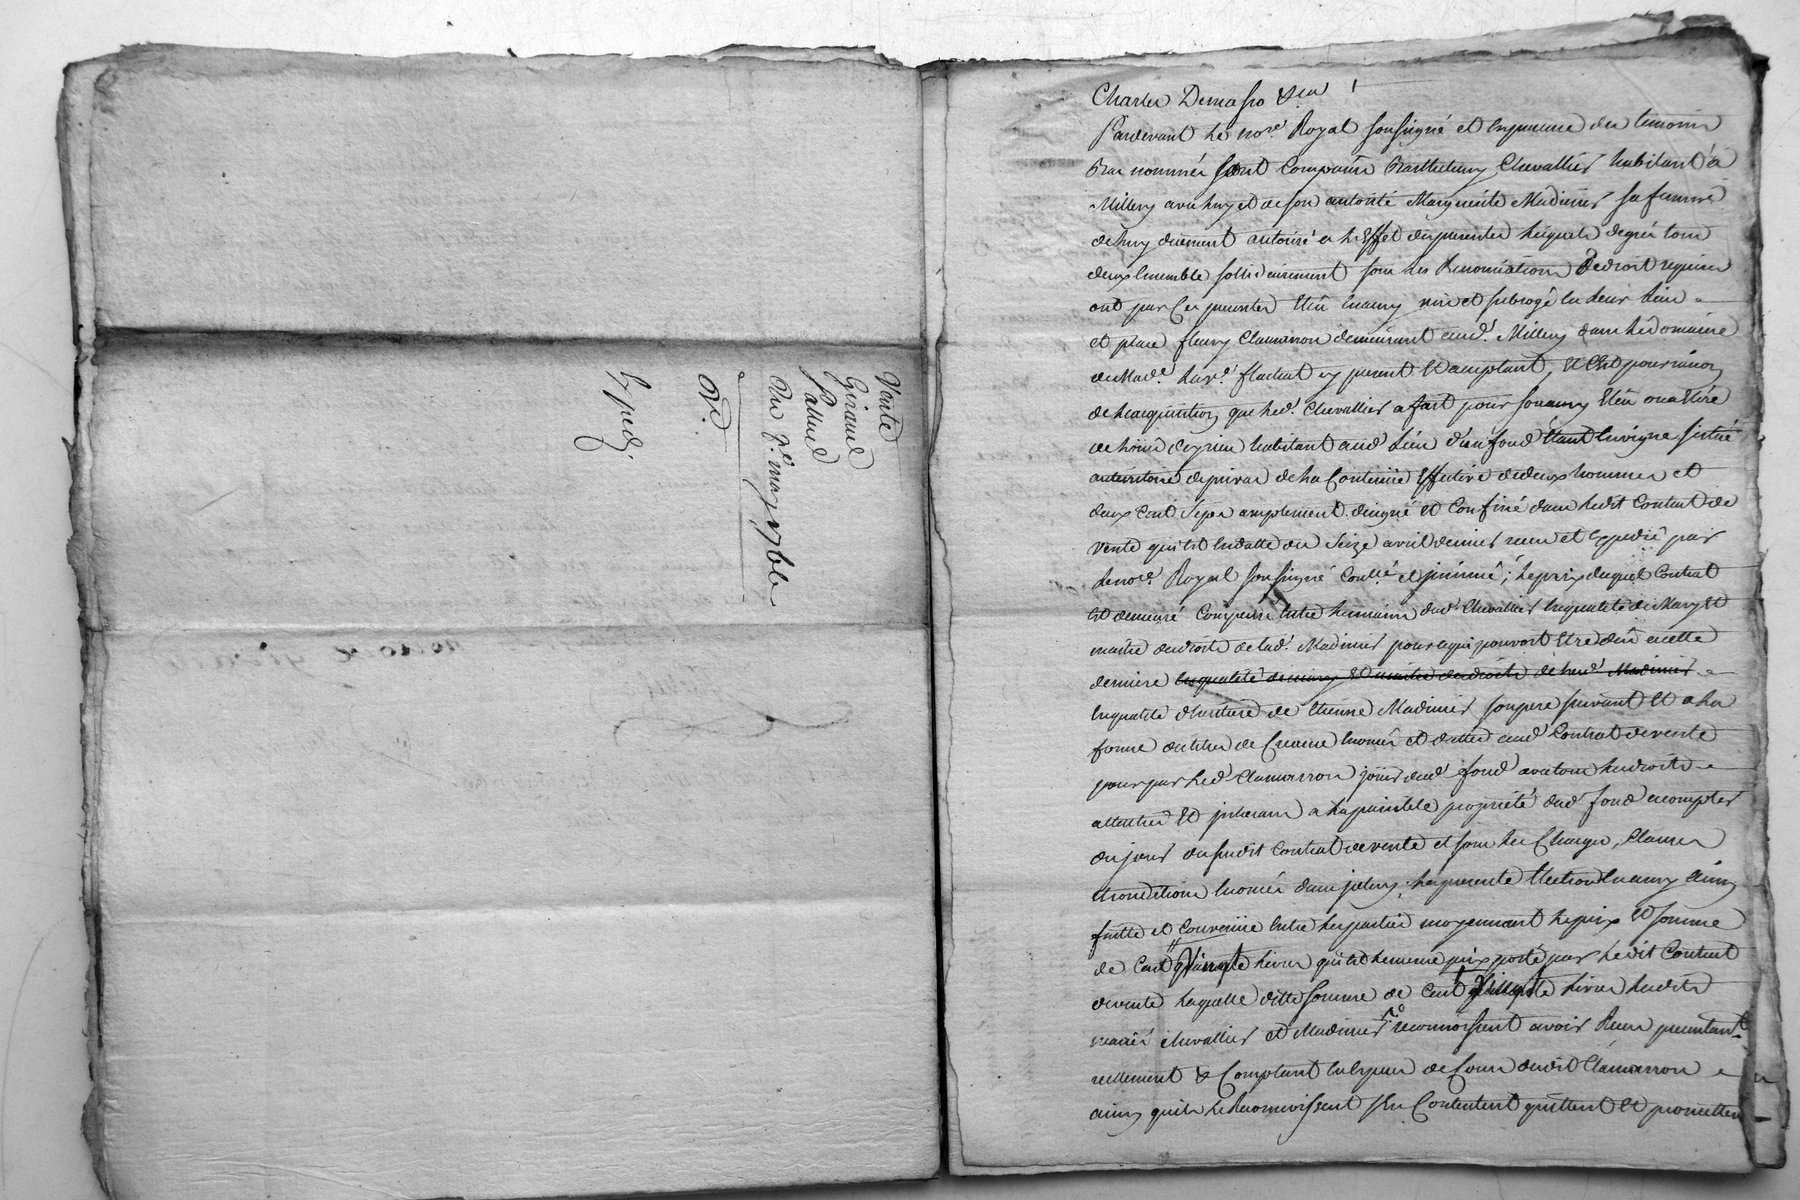 Vente
Giraud
Pallud
Du 9e may 1766
Exped.
Charles Demasso &ca
Pardevant le nore Royal soussigné et en presence des temoins
Bas nommés sont comparûs Barthelemy Chevallier habitant a
Millery avec luy et de son autorité Marguerite Madinier sa femme
de luy duement autorisé a l'Effet des presentes lesquels de gré tous
deux Ensemble sollidairement sous les Renonciations de droit requises
ont par Ces presentes Eleu en amy mis et subrogé en leurs lieu
et place fleury Clamaron demeurant aud. Millery dans le domaine
de Made. la ve. flachat cy present Et acceptant, Et C'est pour raison
de l'acquisition que led. Chevallier a fait pour son amy Eleu ou a Elire
de habitant aud. Lieu d'un fond Etant En vigne situé
au territoire de de la Contenüe Effective de deux hommes et
deux Cent Seps amplement designé et Confiné dans ledit Contract de
Vente qui est En datte du Seize avril dernier receu et Expedié par
le nore. Royal soussigné Conllé et insinué; le prix duquel Contrat
Est demeuré Compensé Entre les mains dud. Chevallier En qualité de Mary Et
maitre des droits de lad. Madinier pour ce qui pouvoit Etre dû a cette
derniere En qualité de mary Et maitre des droits de lad. Madinier
En qualité d'heritiere de Etienne Madinier son pere suivant Et a la
forme des titres de Creance Enoncés et dattés aud. Contrat de vente
pour par led. Clamaron jouir dud. fond avec tous les droits
attachés Et inherans a la propriété dud. fond a compter
du jour du susdit Contrat de vente et sous les Charges, Clauses
et conditions Enoncés dans iceluy; la presente Election En amy ainsy
faitte et Convenüe Entre les parties moyennant le prix Et somme
de Cent livres qui est le meme prix porté par ledit Contract
de vente laquelle ditte somme de Cent livres lesdits
mariés Chevallier et Madinier reconnoissent avoir Receu presentement
reellement & Comptant En Especes de Cours dudit Clamaron
ainsy qu'ils le Reconnoissent s'En Contentent quittent Et promettent